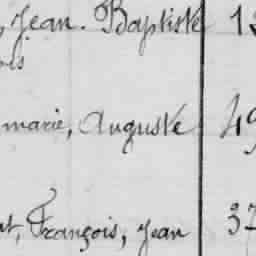 , Jean-Baptiste 1
marie, Auguste 49
François, Jean 37